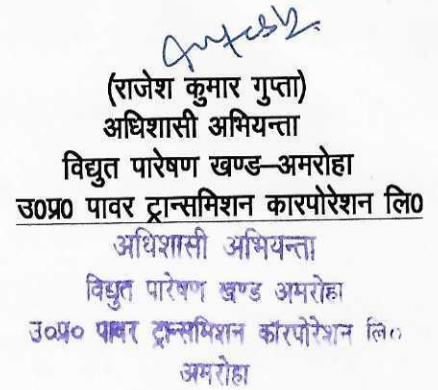 (राजेश कुमार गुप्ता)
अधिशासी अभियन्ता
विद्युत पारेषण खण्ड–अमरोहा
उ०प्र० पावर ट्रान्समिशन कारपोरेशन लि०
अधिशासी अभियन्ता
विद्युत पारेषण खण्ड अमरोहा
उ०प्र० पावर ट्रान्समिशन कॉरपोरेशन लि०
अमरोहा